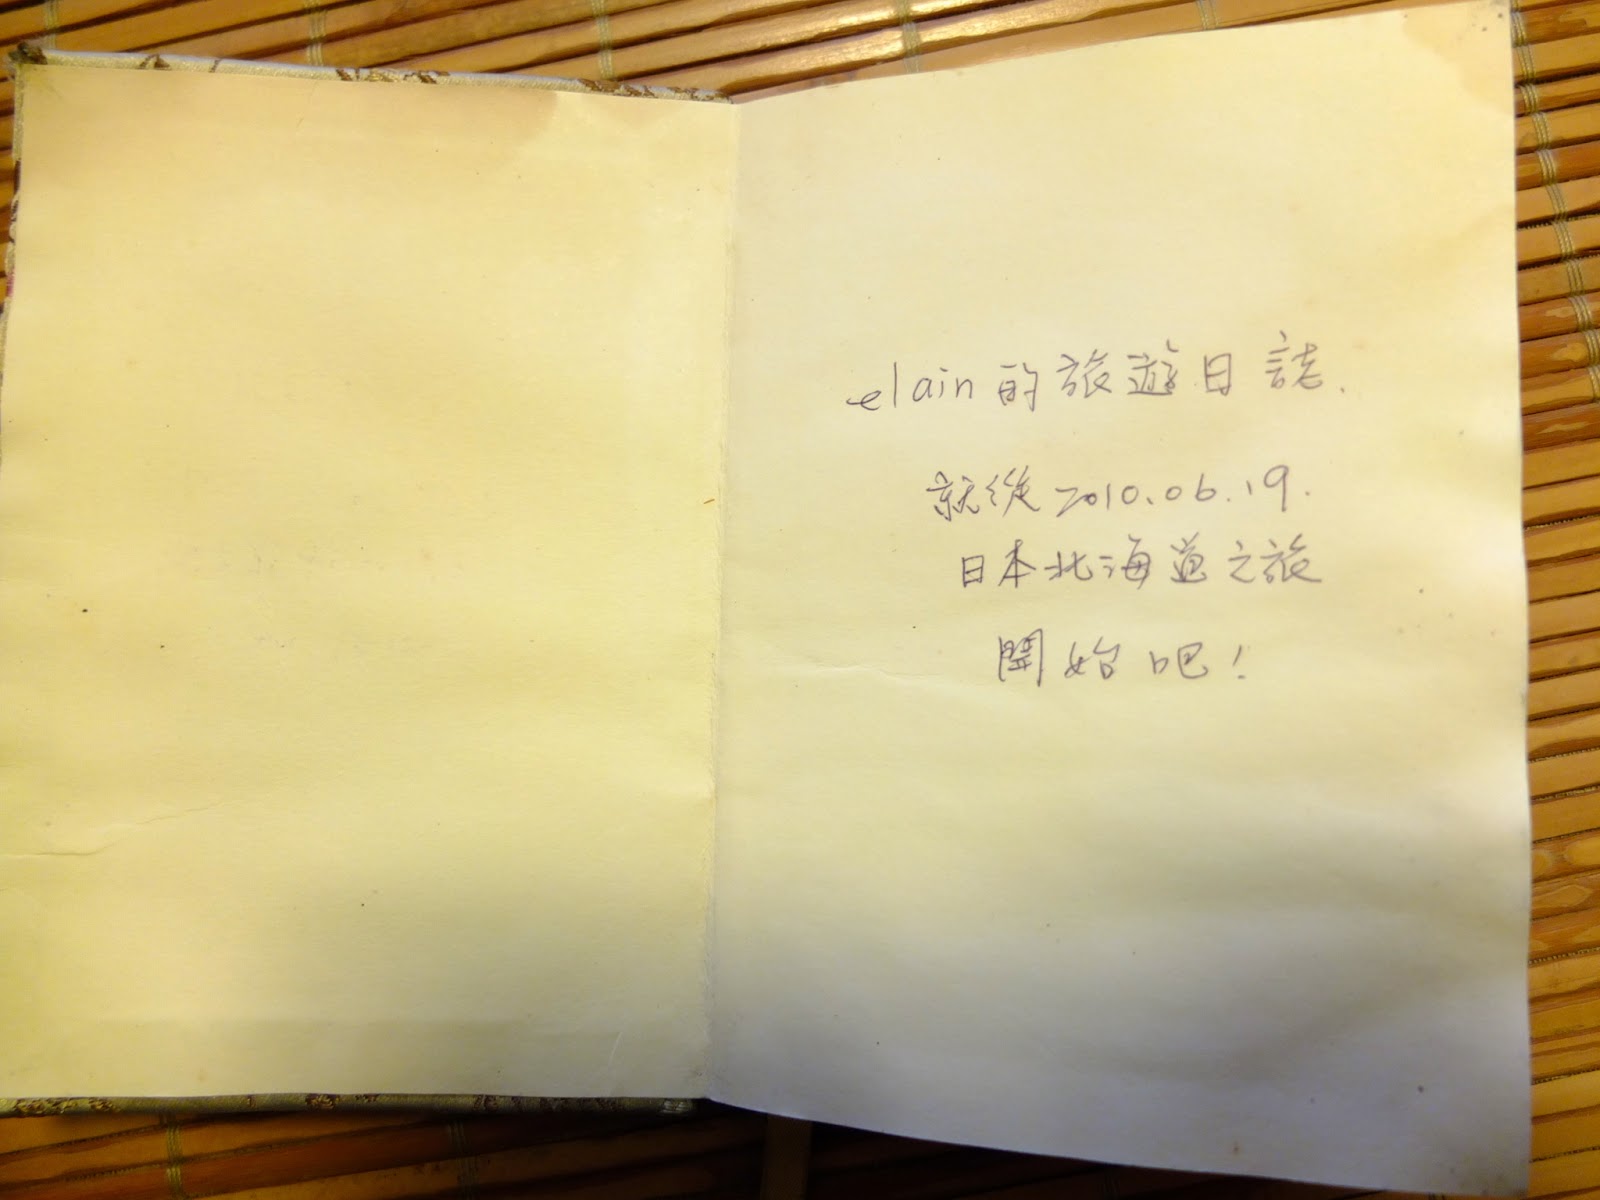 elain的旅遊日誌.
就從2010.06.19.
日本北海道之旅
開始吧!